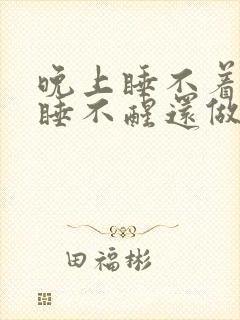 晚上睡不着
睡不醒還做
田福彬